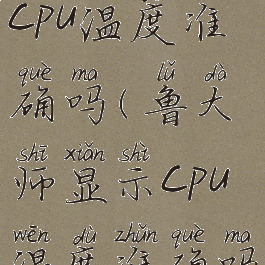 CPU温度准
què ma lǔ dà
确吗(鲁大
shī xiǎn shì
师显示CPU
wēn dù zhǔn què ma
温度准确吗